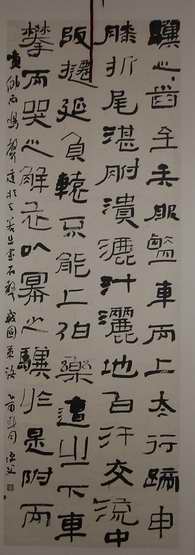 驥之齒至矣服鹽車而上太行蹄申
膝折尾湛胕潰漉汁灑地白汗交流中
阪遷延負轅不能上伯樂遭之下車
攀而哭之解衣以冪之驥於是附而
噴仰而鳴聲達於天若出金石聲 戰國策語